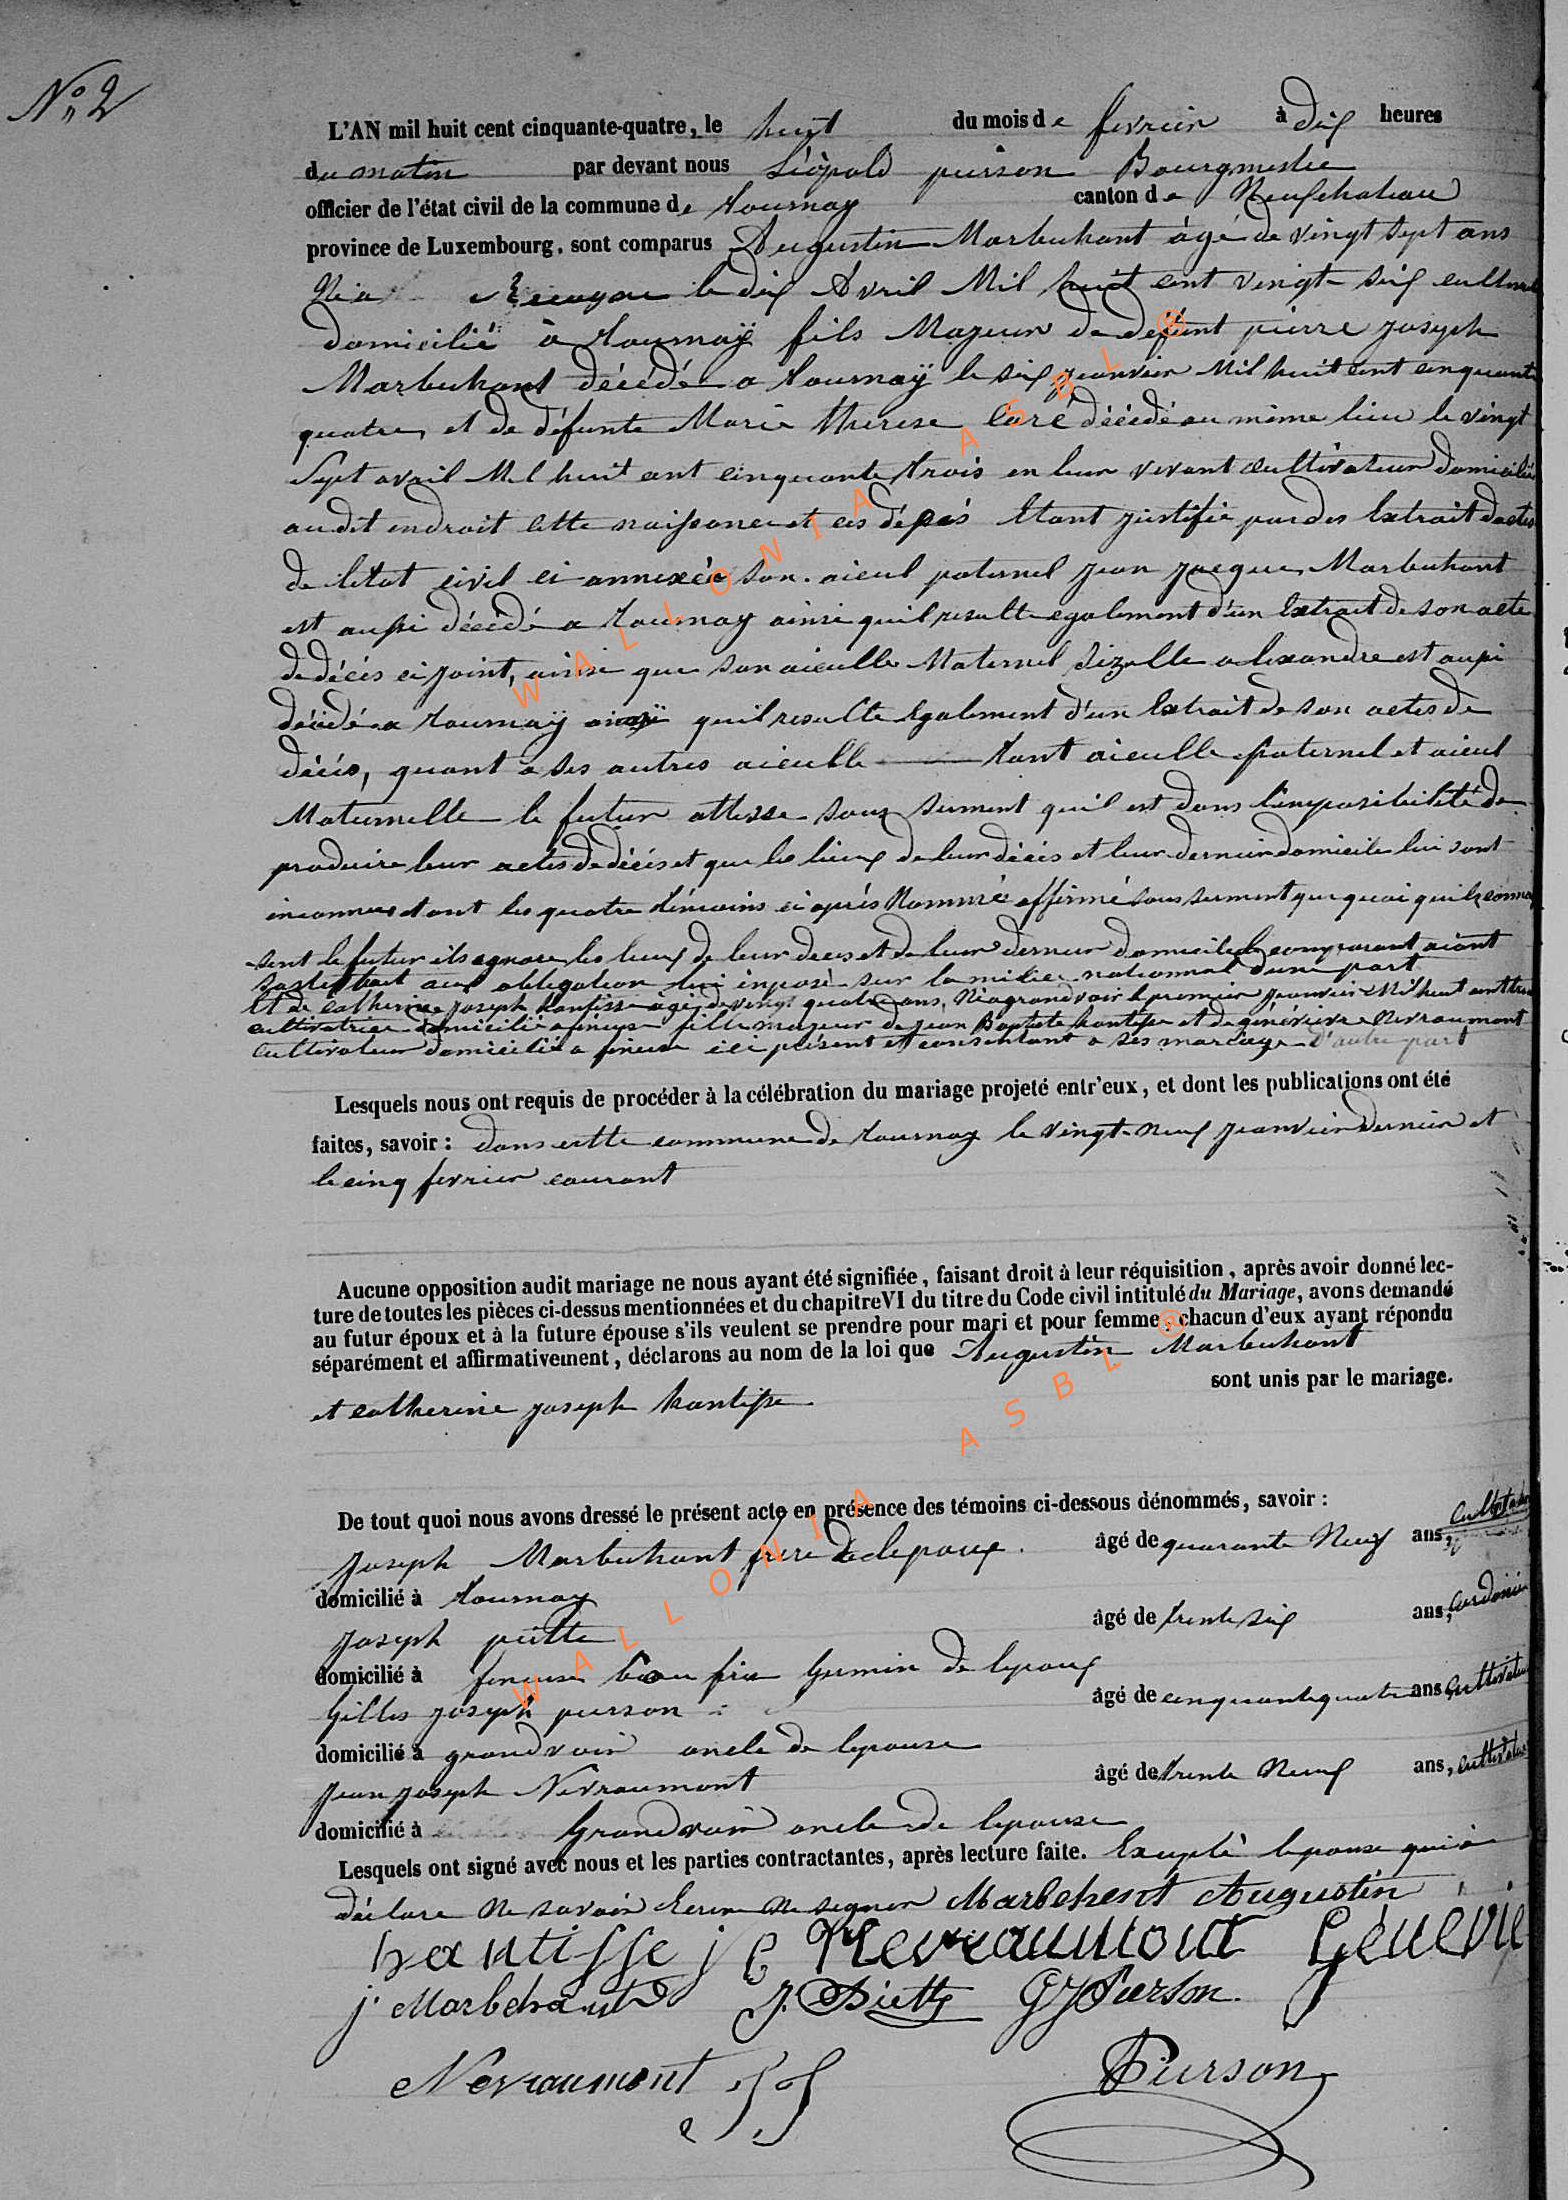 N° 2
L'AN mil huit cent cinquante-quatre, le huit du mois de fevrier à dix heures
du matin par devant nous Léopold pierson Bourgmestre
officier de l'état civil de la commune de tournay canton de Neufchateau
province de Luxembourg, sont comparus Augustin Marbehant àgé de vingt sept ans
Né a le dix Avril Mil huit cent vingt-six
domicilié à tournaÿ fils Majeur de defunt pierre joseph
Marbehant décédé a tournaÿ le six janvier Mil huit cent cinquante
quatre, et de défunte Marie therese decédé au même lieu le vingt
Sept avril Mil huit cent cinquante trois en leur vivant cultivateur domicilié
audit endroit cette naissance et ces dépés Etant justifié par des Extrait dactes
de letat civil ci annexée son aieul paternel jean jacques Marbehant
est aussi décédé a tournay ainsi quil resulte egalement d'un Extrait de son acte
de décés ci joint, ainsi que son aieulle Maternel alexandre est aussi
décédé a tournaÿ quil resulte Egalement d'un Extrait de son actes de
décés, quant a ses autres aieulle tant aieulle paternel et aieul
Maternelle le futur atteste sous serment quil est dans l'imposibilité de
produire leur actes de décés et que les lieux de leur décés et leur dernier domicile lui sont
inconnues dont les quatre témoins ci aprés Nommé affirmé sous serment que quoi quils connais
sent le futur ils ignore les lieux de leur deces et de leur dernier domicile le comparant aiant
satisfait aux obligation lui imposé sur la milice nationnal d'une part
Et de Catherine joseph hantisse àgé de vingt quatre ans, Né a grandvoir le premier janvier Mil huit cent
cultivatrice domicilié a fineuse fille majeur de jean Baptiste hantisse et de généviève Nevraumont
cultivateur domicilié a fineuse ici présent et consentant a ses mariage D'autre part
Lesquels nous ont requis de procéder à la célébration du mariage projeté entr'eux, et dont les publications ont été
faites, savoir : dans cette commune de tournay le vingt-neuf janvier dernier et
le cinq fevrier courant
Aucune opposition audit mariage ne nous ayant été signifiée, faisant droit à leur réquisition, après avoir donné lec-
ture de toutes les pièces ci-dessus mentionnées et du chapitre VI du titre du Code civil intitulé du Mariage, avons demandé
au futur époux et à la future épouse s'ils veulent se prendre pour mari et pour femme, chacun d'eux ayant répondu
séparément et affirmativement, déclarons au nom de la loi que Augustin Marbehant
et catherine joseph hantisse sont unis par le mariage.
De tout quoi nous avons dressé le présent acte en présence des témoins ci-dessous dénommés, savoir :
Joseph Marbehant frere de lepoux âgé de quarante Neuf ans, Cultivateur
domicilié à tournay
Joseph piette âgé de trente six ans, Cordonnier
domicilié à fineuse beau frere Germin de lepoux
Gilles joseph pierson âgé de cinquante quatre ans Cultivateur
domicilié à grandvoir oncle de lepouse
Jean joseph Nevraumont âgé de trente Neuf ans, cultivateur
domicilié à Grandvoir oncle de lepouse
Lesquels ont signé avec nous et les parties contractantes, après lecture faite. Excepté lepouse qui a
déclare ne savoir Ecrire ne signer Marbehent Augustin
hantisse j B Nevraumont Génevie
j. Marbehant J. Piette G J Pierson.
Nevraumont J J Pierson
WALLONIA ASBL ®
WALLONIA ASBL ®